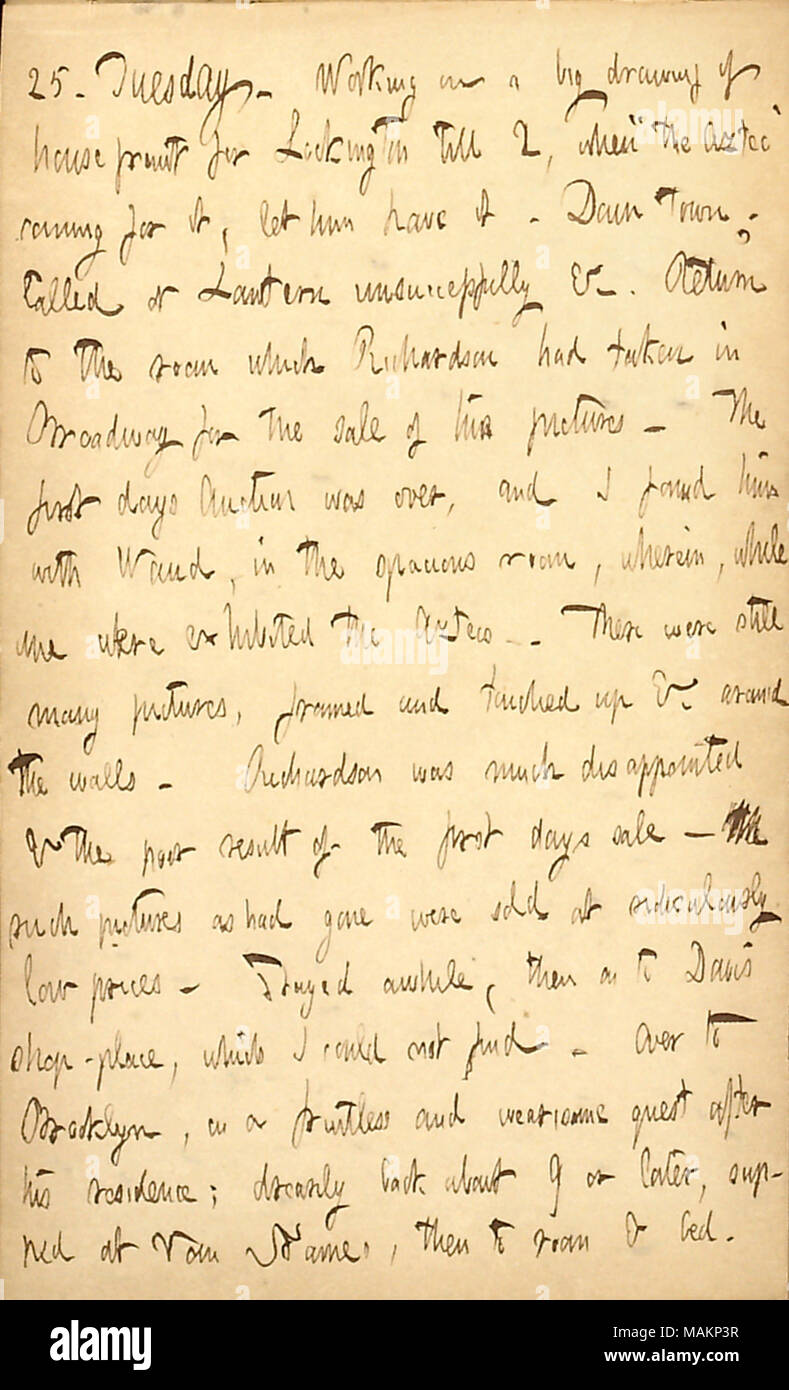 25. Tuesday. Working on a big drawing of
house front for Lockington till 2, when "the Aztec"
coming for it, let him have it. Down town,
Called at Lantern unsuccessfully &c. Return
to the room which Richardson had taken in
Broadway for the sale of his pictures. The
first days Auction was over, and I found him
with Waud, in the spacious room, wherein, while
were exhibited the Aztecs. There were still
many pictures, framed and touched up &c around
the walls. Richardson was much disappointed
the poor result of the first days sale —
such pictures as had gone were sold at ridiculously
low prices. Stayed awhile, then on to Davis
shop-place, which I could not find. Over to
Brooklyn, on a fruitless and wearisome quest after
his residence; drearily back about 9 or later, sup-
ped at , then to room & bed.
alamy
alamy
Image ID: MAKP3R
www.alamy.com